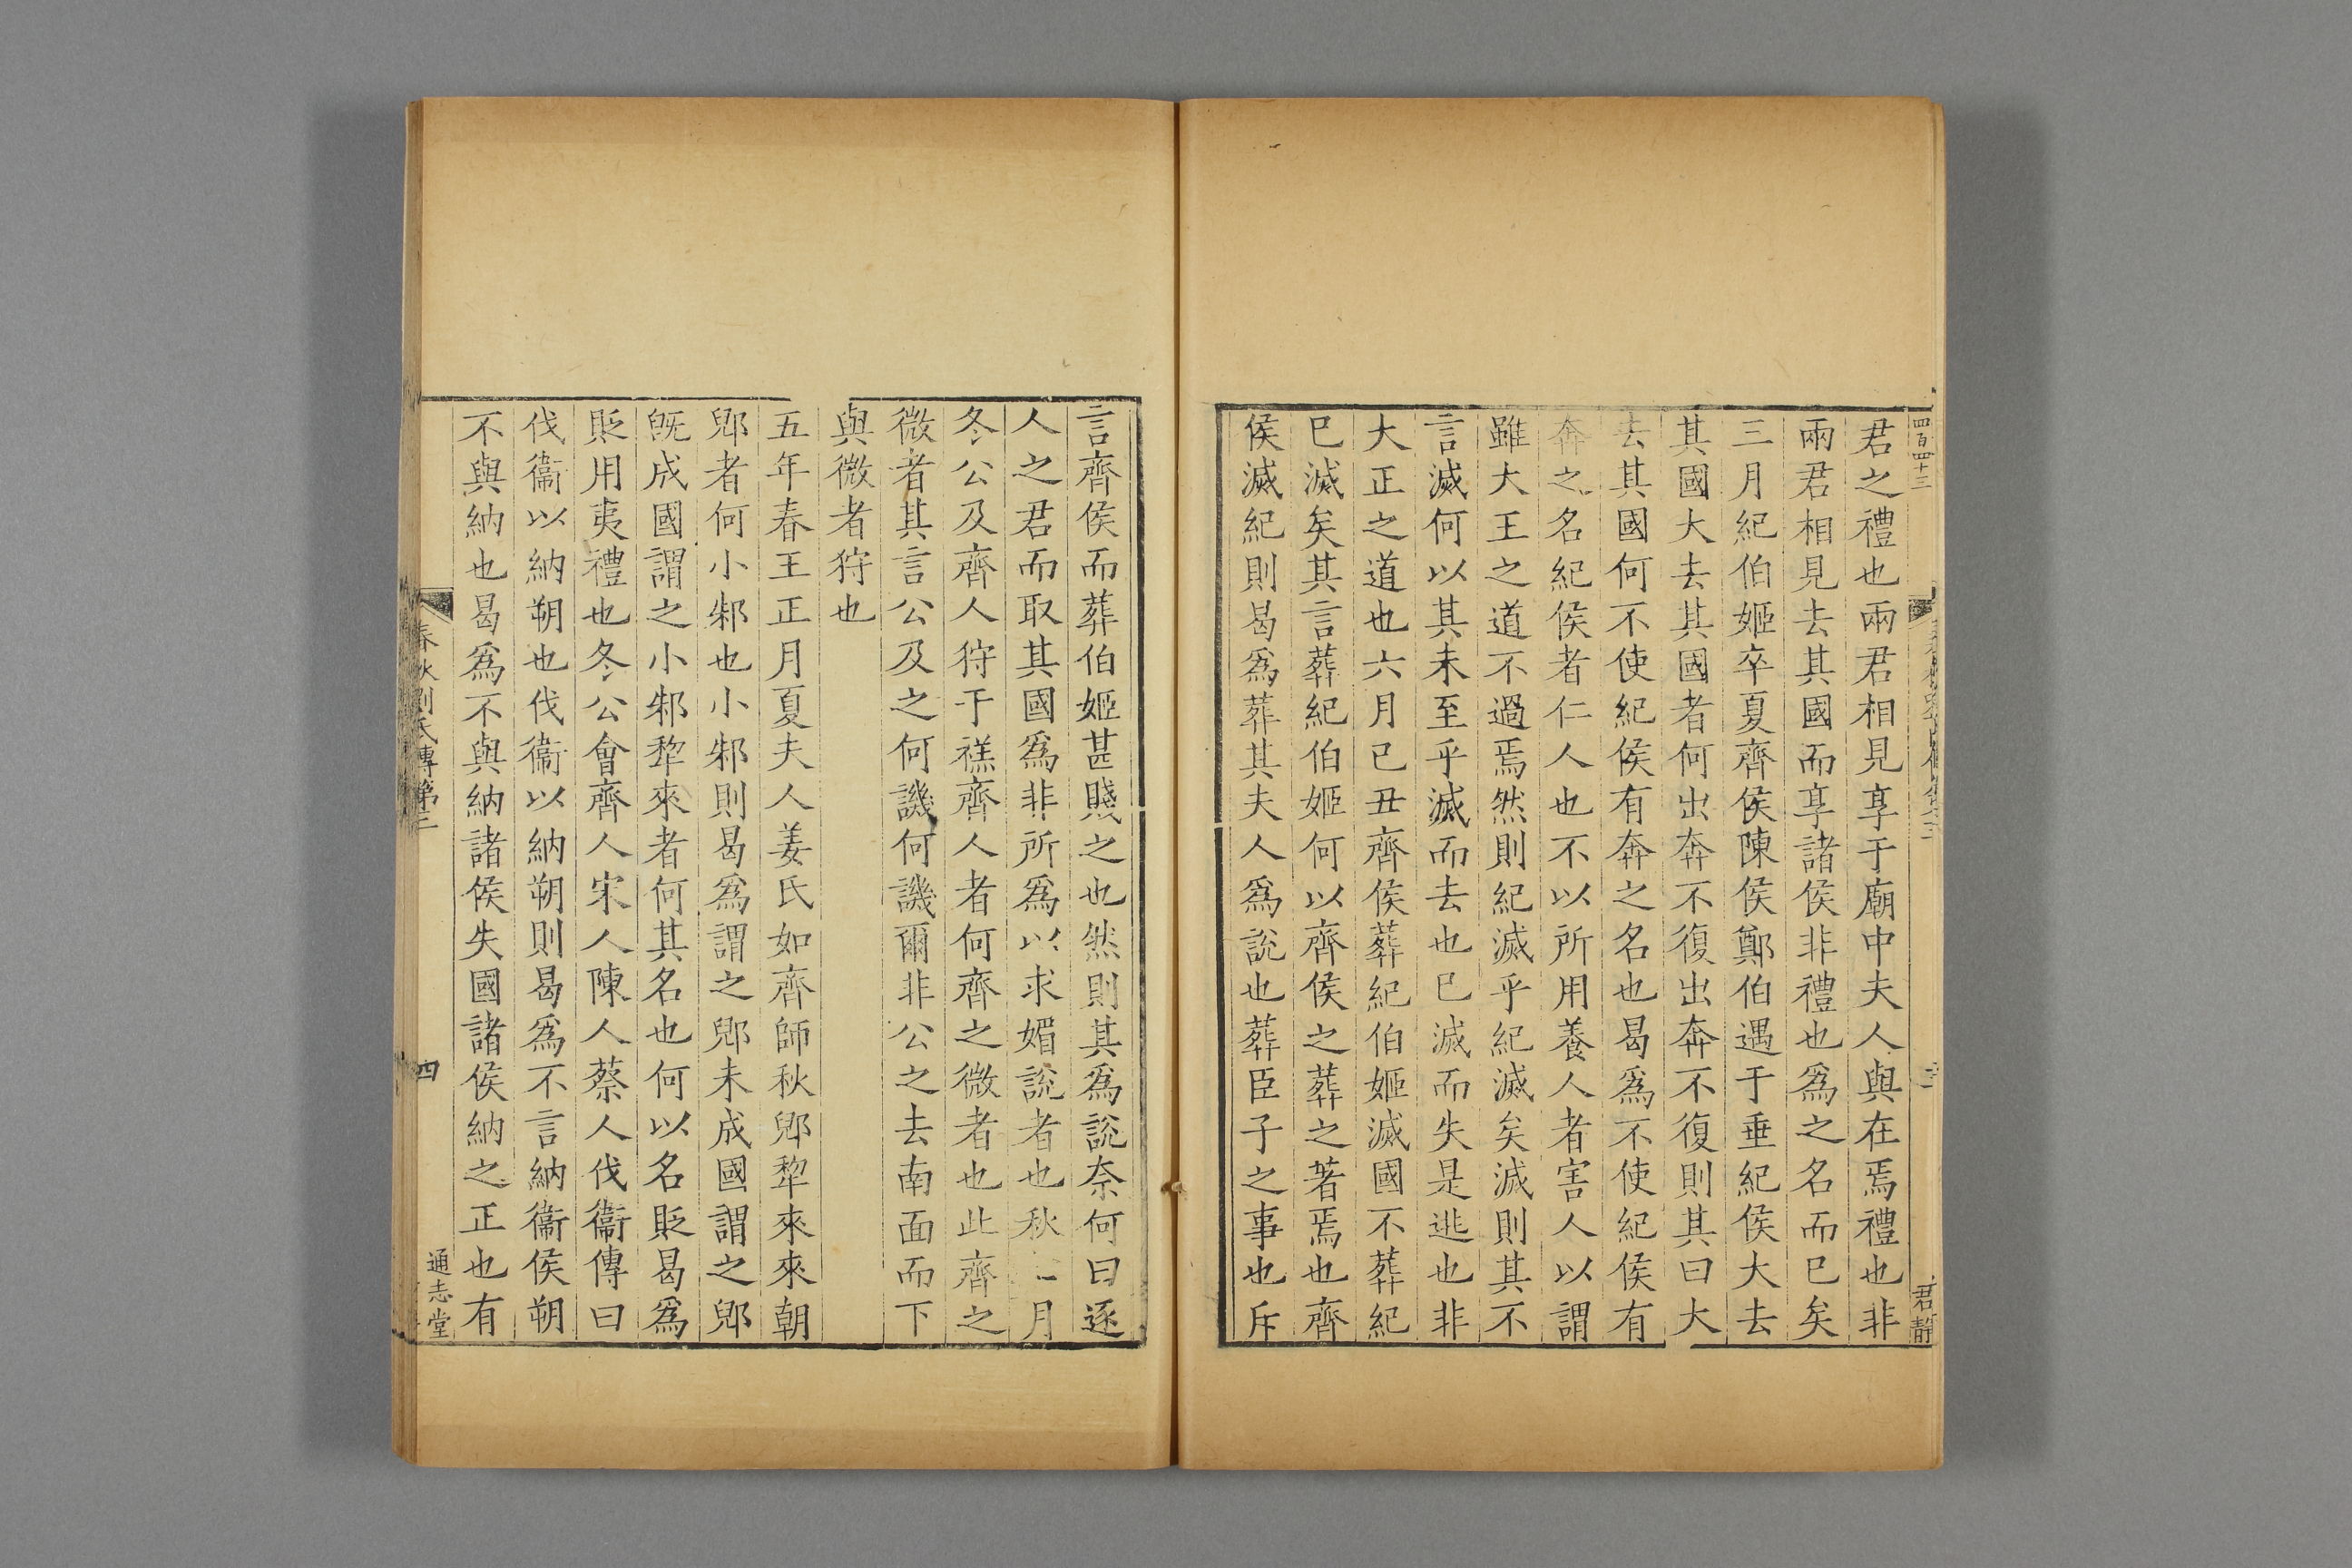 四百四十三
君静
君之禮也兩君相見享于廟中夫人與在焉禮也非
兩君相見去其國而享諸侯非禮也爲之名而已矣
三月紀伯姬卒夏齊侯陳侯鄭伯遇于垂紀侯大去
其國大去其國者何出奔不復出奔不復則其曰大
去其國何不使紀侯有奔之名也曷爲不使紀侯有
奔之名紀侯者仁人也不以所用養人者害人以謂
雖大王之道不過焉然則紀滅乎紀滅矣滅則其不
言滅何以其未至乎滅而去也已滅而失是逃也非
大正之道也六月已丑齊侯葬紀伯姬滅國不葬紀
已滅矣其言葬紀伯姬何以齊侯之葬之著焉也齊
侯滅紀則曷爲葬其夫人爲說也葬臣子之事也斥
言齊侯而葬伯姬甚賤之也然則其爲說奈何曰逐
人之君而取其國爲非所爲以求媚說者也秋月
冬公及齊人狩于禚齊人者何齊之微者也此齊之
微者其言公及之何譏何譏爾非公之去南面而下
與微者狩也
五年春王正月夏夫人姜氏如齊師秋郳犂來來朝
郳者何小邾也小邾則曷爲謂之郳未成國謂之郳
旣成國謂之小邾犂來者何其名也何以名貶曷爲
貶用夷禮也冬公會齊人宋人陳人蔡人伐衞傳曰
伐衞以納朔也伐衞以納朔則曷爲不言納衞侯朔
不與納也曷爲不與納諸侯失國諸侯納之正也有
春秋劉氏傳第三
四
通志堂